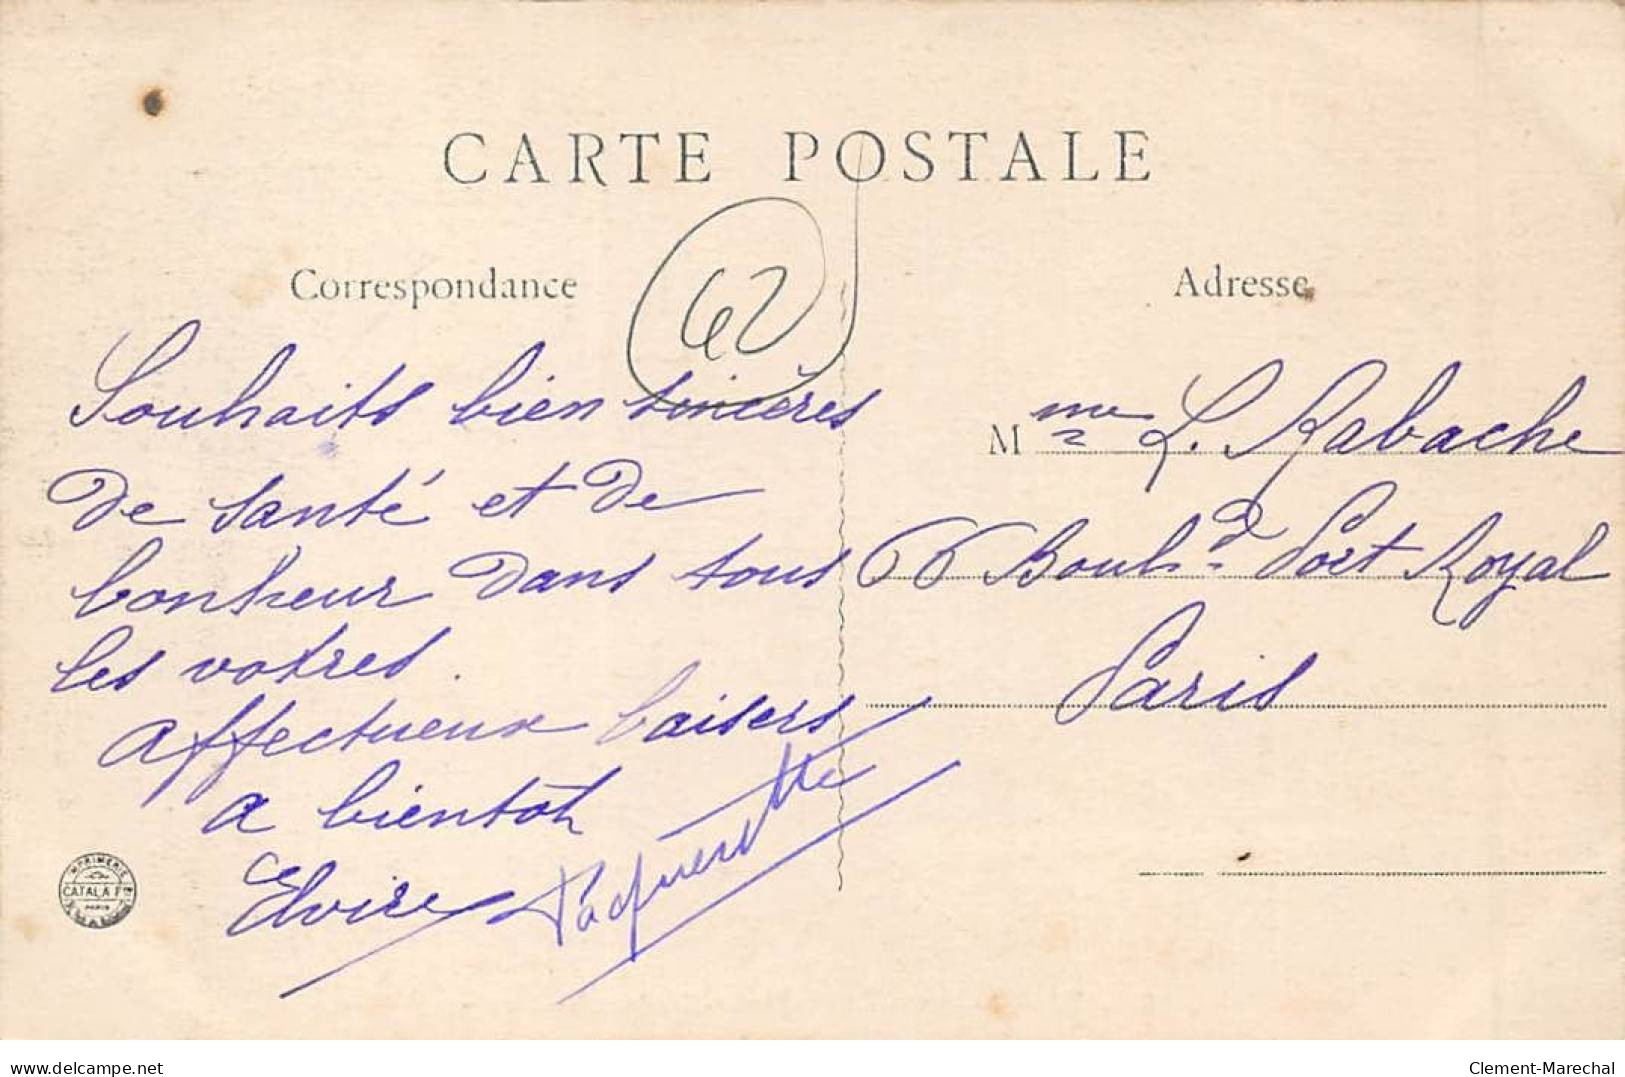 CARTE POSTALE
Correspondance
42
Adresse
Souhaits bien sincères
de santé et de
bonheur dans tous
les votres.
affectueux baisers
a bientôt
Elvire Paquerette
Mme L. Rabache
66 Boul.d Port Royal
Paris
IMPRIMERIE
CATALA F
PARIS
delcampe.net
Clement-Marechal